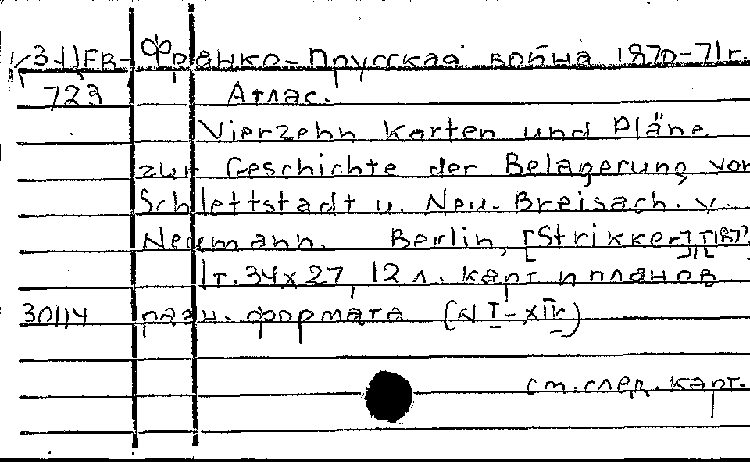 Франко-Прусская война 1870-71г.
723 Атлас.
Vierzehn Karten und Pläne
zur Geschichte der Belagerung von
Schlettstadt u. Neu-Breisach. v.
Neumann. Berlin, [Strikker],
1т. 34х27, 12 л. карт и планов
30114 разн. формата (N I-XIV)
см. след. карт.